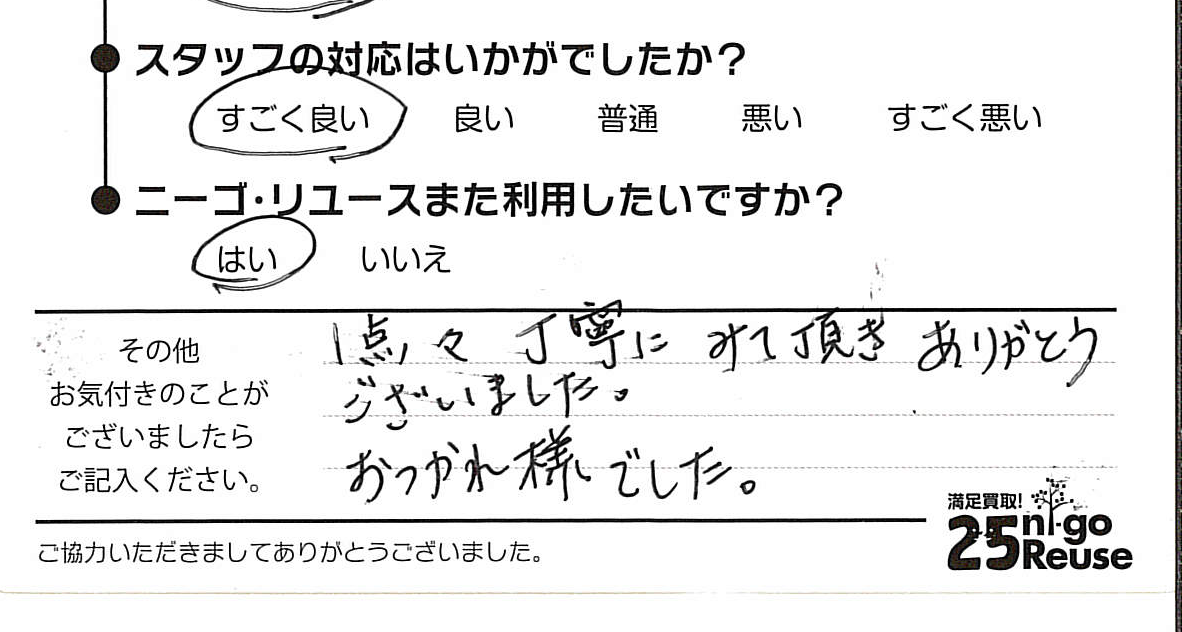 スタッフの対応はいかがでしたか？
すごく良い 良い 普通 悪い すごく悪い
ニーゴ・リユースまた利用したいですか？
はい いいえ
その他
お気付きのことが
ございましたら
ご記入ください。
1点々 丁寧に みて頂き ありがとう
ございました。
おつかれ様でした。
満足買取!
25 ni-go
Reuse
ご協力いただきましてありがとうございました。